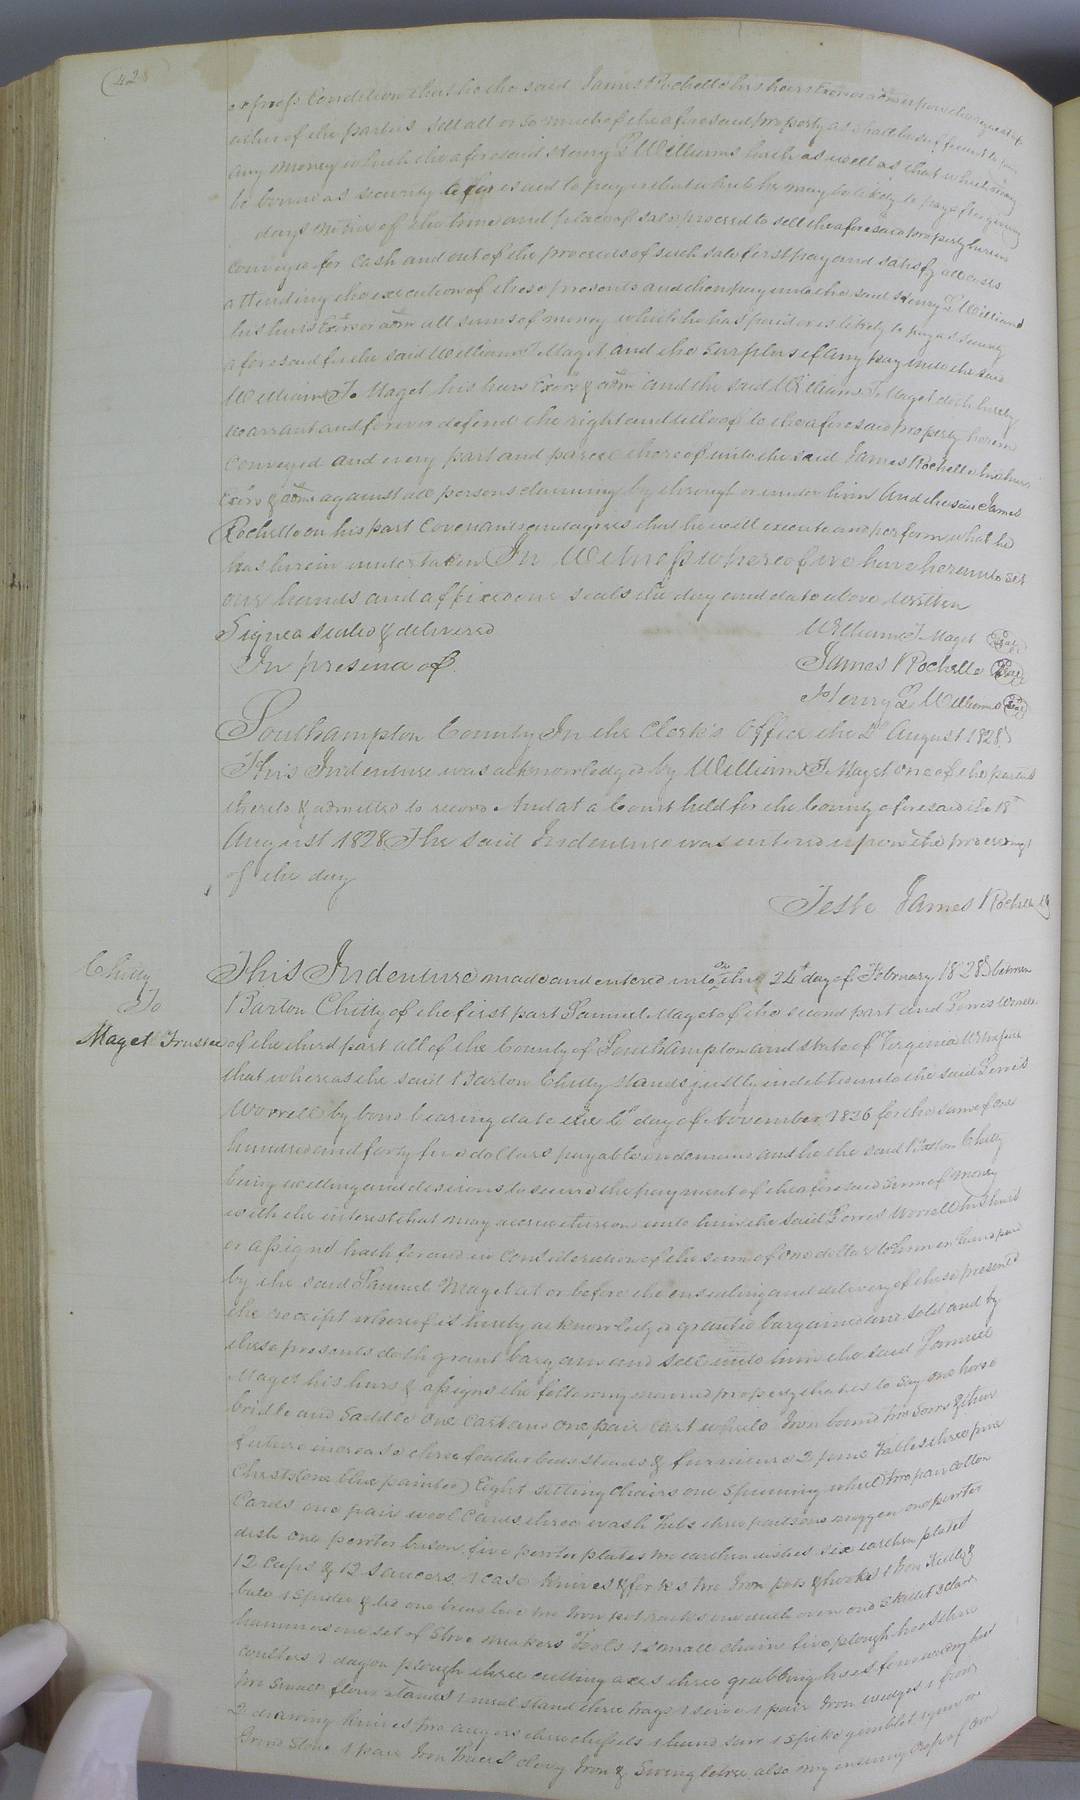 428
express Condition that he the said James Rochelle his heirs Exors or adms upon the request of
either of the parties sell all or so much of the aforesaid property as shall be sufficient to
any money which the aforesaid Henry L Williams hath as well as that which may
be bound as security to pay after giving
days notice of the time and place of sale proceed to sell the aforesaid property herein
conveyed for Cash and out of the proceeds of such sale first pay and satisfy all costs
attending the execution of these presents and then pay unto the said Henry L Williams
his heirs Exors or adms all sums of money which he has paid or is likely to pay as security
aforesaid for the said William T Maget and the surplus if any pay unto the said
William T. Maget his heirs Exors & adms and the said William T Maget doth hereby
warrant and forever defend the right and title of to the aforesaid property herein
Conveyed and every part and parcel thereof unto the said James Rochelle his heirs
Exors & adms against all persons claiming by through or under him And the said James
Rochelle on his part Covenants and agrees that he will execute and perform what he
has herein undertaken In Witness whereof we have hereunto set
our hands and affixed our seals the day and date above written
Signed sealed & delivered William T Maget Seal
In presence of James Rochelle Seal
Henry L Williams Seal
Southampton County In the Clerk's Office the 2d August 1828
This Indenture was acknowledged by William T Maget one of the parties
thereto & admitted to record And at a Court held for the County aforesaid the 18th
August 1828 The said Indenture was entered upon the proceedings
of the day
Teste James Rochelle
Chitty
To
Maget Trustee
This Indenture made and entered into on this 24th day of February 1828 between
Barton Chitty of the first part Samuel Maget of the second part and Lewis Worrell
of the third part all of the County of Southampton and state of Virginia Witnesseth
that whereas the said Barton Chitty stands justly indebted unto the said Lewis
Worrell by bond bearing date the 6th day of November 1826 for the sum of one
hundred and forty five dollars payable on demand and he the said Barton Chitty
being willing and desirous to secure the payment of the aforesaid sum of money
with the interest that may accrue thereon unto him the said Lewis Worrell his heirs
or assigns hath for and in consideration of the sum of one dollar to him in hand paid
by the said Samuel Maget at or before the ensealing and delivery of these presents
the receipt whereof is hereby acknowledged granted bargained and sold and by
these presents doth grant bargain and sell unto him the said Samuel
Maget his heirs & assigns the following named property that is to say one horse
bridle and saddle one Cart and one pair cart wheels Iron bound two sows & their
future increase three feather beds steads & furniture 2 pine Tables three pine
Chests (one blue painted) Eight sitting chairs one spinning wheel two pair cotton
Cards one pair wool Cards three wash Tubs three pails one noggen one pewter
dish one pewter bason five pewter plates two earthen dishes six earthen plates
12 Cups & 12 Saucers 1 case knives & forks two Iron pots & hooks 1 Iron Kettle &
bale 1 Spider & lid one two Iron pot racks one dutch oven one skillet 3 claw
hammers one set of Shoe makers Tools 1 small chain five plough hoes three
coulters 1 dagon plough three cutting axes three grubbing hoes four weeding hoes
two small flour stands 1 meal stand three 1 sieve 1 pair Iron wedges 1 froe
2 drawing knives two augers three chissels 1 hand saw 1 Spike gimblet
Grind Stone 1 pair Iron Traces Clevy Iron & Swingletree also my ensuing Crop of Corn